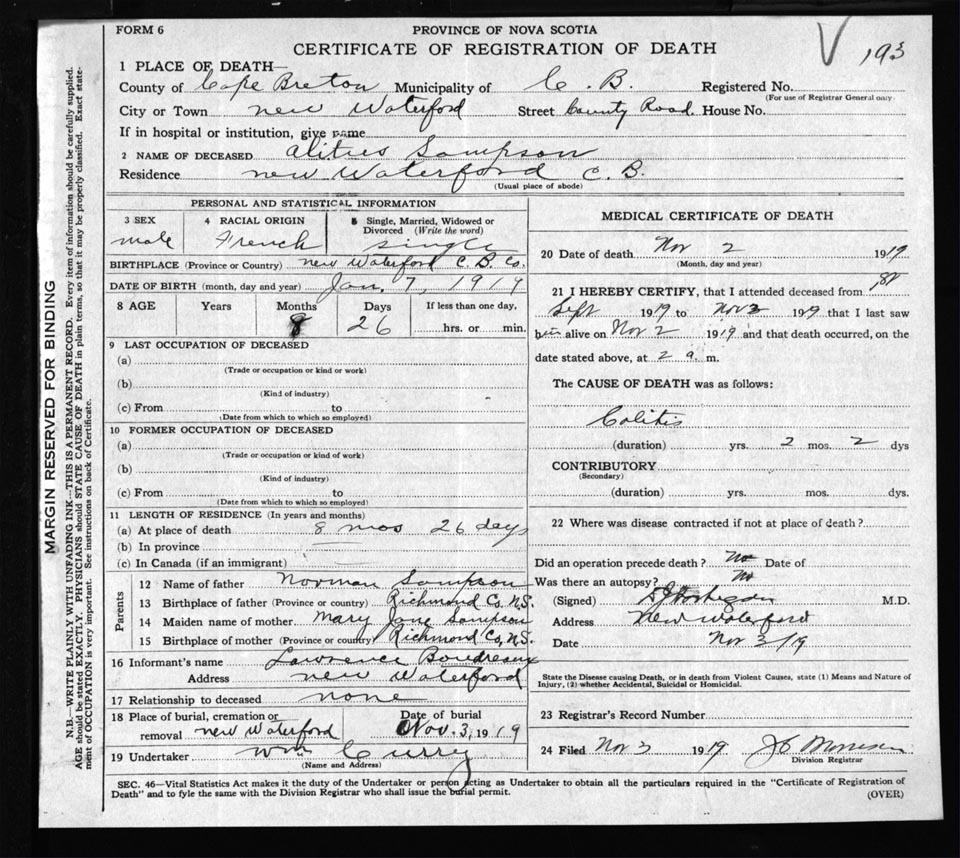 FORM 6
PROVINCE OF NOVA SCOTIA
CERTIFICATE OF REGISTRATION OF DEATH
193
1 PLACE OF DEATH—
County of Cape Breton Municipality of C. B. Registered No.
(For use of Registrar General only)
City or Town New Waterford Street County Road. House No.
If in hospital or institution, give name
2 NAME OF DECEASED Sampson
Residence New Waterford C. B.
(Usual place of abode)
PERSONAL AND STATISTICAL INFORMATION
3 SEX 4 RACIAL ORIGIN 5 Single, Married, Widowed or Divorced (Write the word)
male French single
BIRTHPLACE (Province or Country) New Waterford C. B. Co.
DATE OF BIRTH (month, day and year) Jan. 7, 1919
8 AGE Years Months Days If less than one day,
8 26 hrs. or min.
9 LAST OCCUPATION OF DECEASED
(a)
(Trade or occupation or kind or work)
(b)
(Kind of industry)
(c) From to
(Date from which to which so employed)
10 FORMER OCCUPATION OF DECEASED
(a)
(Trade or occupation or kind of work)
(b)
(Kind of industry)
(c) From to
(Date from which to which so employed)
11 LENGTH OF RESIDENCE (In years and months)
(a) At place of death 8 mos 26 days
(b) In province
(c) In Canada (if an immigrant)
Parents
12 Name of father Norman Sampson
13 Birthplace of father (Province or country) Richmond Co, N.S.
14 Maiden name of mother Mary Jane Sampson
15 Birthplace of mother (Province or country) Richmond Co, N.S.
16 Informant's name Lawrence Boudreaux
Address New Waterford
17 Relationship to deceased none
18 Place of burial, cremation or removal New Waterford Date of burial Nov. 3, 1919
19 Undertaker Wm Curry
(Name and Address)
MEDICAL CERTIFICATE OF DEATH
20 Date of death Nov 2 1919
(Month, day and year)
21 I HEREBY CERTIFY, that I attended deceased from
Sept 1919 to Nov 2 1919 that I last saw
him alive on Nov 2 1919 and that death occurred, on the
date stated above, at 2 a. m.
The CAUSE OF DEATH was as follows:
Colitis
(duration) yrs. 2 mos. 2 dys
CONTRIBUTORY
(Secondary)
(duration) yrs. mos. dys.
22 Where was disease contracted if not at place of death?
Did an operation precede death? No Date of
Was there an autopsy? No
(Signed) M.D.
Address New Waterford
Date Nov 3/19
State the Disease causing Death, or in death from Violent Causes, state (1) Means and Nature of
Injury, (2) whether Accidental, Suicidal or Homicidal.
23 Registrar's Record Number
24 Filed Nov 3 1919
Division Registrar
SEC. 46—Vital Statistics Act makes it the duty of the Undertaker or person acting as Undertaker to obtain all the particulars required in the "Certificate of Registration of
Death" and to fyle the same with the Division Registrar who shall issue the burial permit.
(OVER)
MARGIN RESERVED FOR BINDING
N.B.—WRITE PLAINLY WITH UNFADING INK—THIS IS A PERMANENT RECORD. Every item of information should be carefully supplied.
AGE should be stated EXACTLY. PHYSICIANS should STATE CAUSE OF DEATH in plain terms, so that it may be properly classified. Exact state-
ment of OCCUPATION is very important. See instructions on back of Certificate.